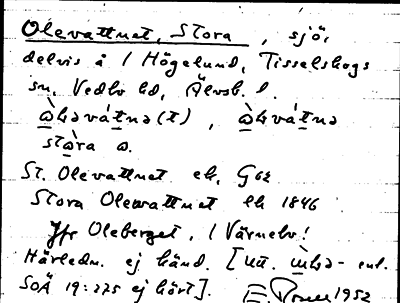 Olevattnet, Stora, sjö,
delvis å 1 Högelund, Tisselskogs
sn, Vedbo hd, Älvsb. l.
stɷ̀ra ɷ.
St. Olevattnet ek, G62
Stora Olewattnet ek 1846
Jfr Oleberget, 1 Värnebo!
Härledn. ej känd. [Utt. enl.
SOÄ 19:275 ej hört]. 1952